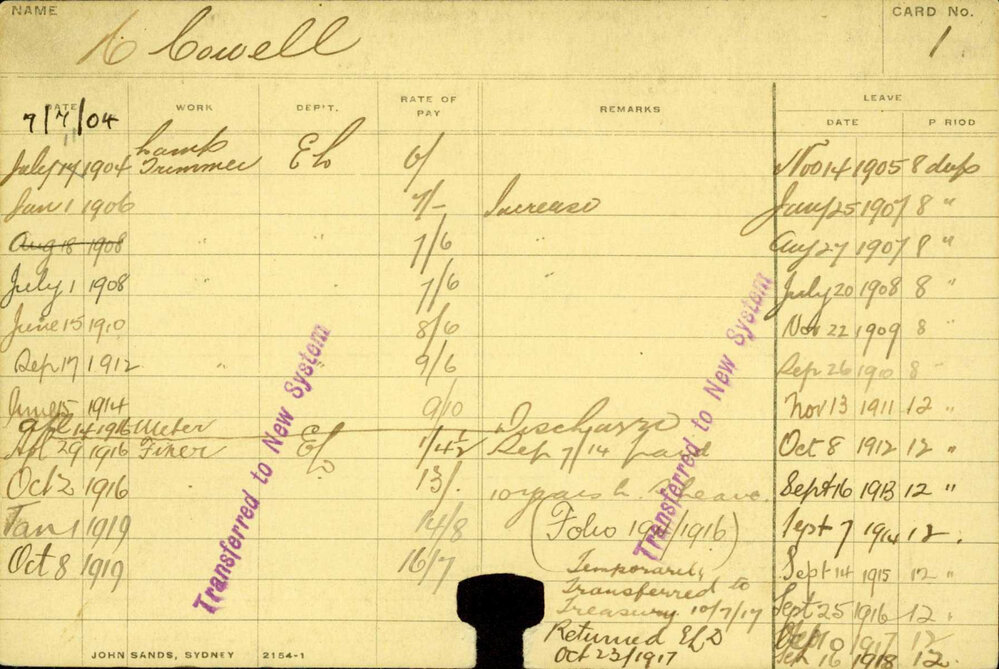 NAME
CARD No.
Cowell
1
DATE WORK DEP'T. RATE OF PAY REMARKS LEAVE
DATE PERIOD
7/7/04
July 1904 Lamp Trimmer EL 6/ Nov 14 1905 8 days
Jan 1 1906 7/- Increase Jany 25 1907 8 "
Aug 18 1908 " " 7/6 Aug 27 1907 8 "
July 1 1908 7/6 " July 20 1908 8 "
June 15 1910 8/6 Nov 22 1909 8 "
Sep 17 1912 " 9/6 Sep 26 1910 8 "
June 15 1914 9/10 Nov 13 1911 12 "
Apl 14 1916 Meter Discharged
Apl 29 1916 Fixer EL 1/4½ Sep 7/14 paid Oct 8 1912 12 "
Oct 2 1916 13/. 10 years Sept 16 1913 12 "
Jan 1 1919 14/8 (Folio /1916) Sept 7 1914 12 .
Oct 8 1919 16/7 Temporarily Sept 14 1915 12 "
Transferred to
Treasury 10/7/17 Sept 25 1916 12 .
Returned ELD 10 1917 12
Oct 23/1917 16 1918 12
Transferred to New System
Transferred to New System
JOHN SANDS, SYDNEY 2154-1